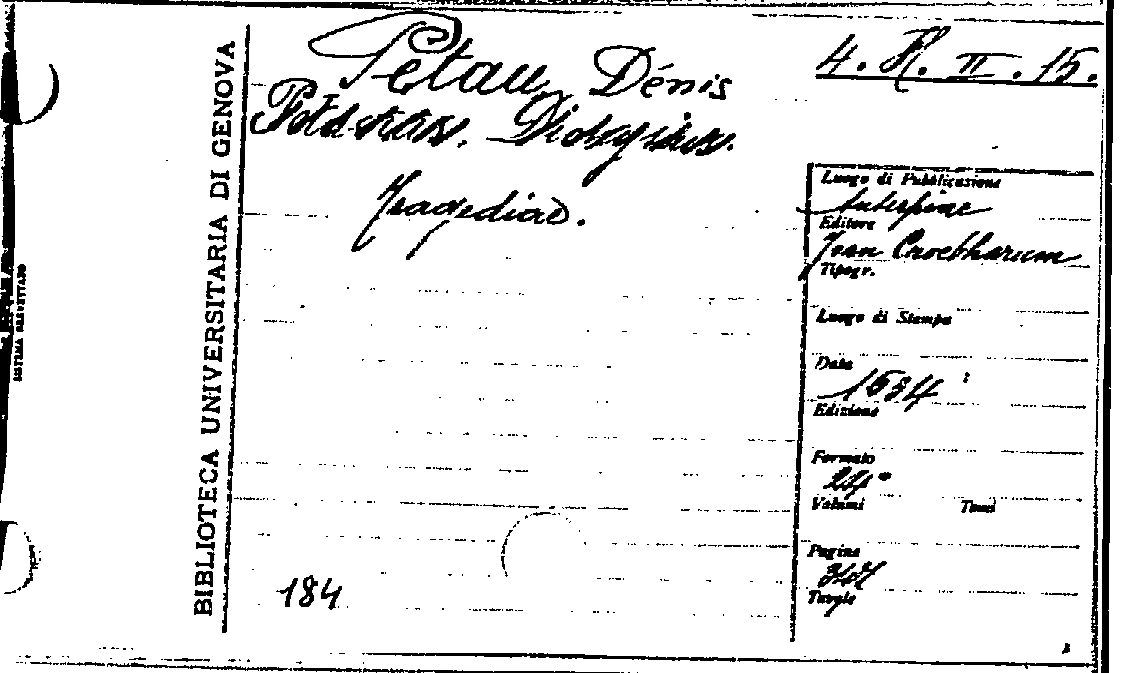 BIBLIOTECA UNIVERSITARIA DI GENOVA
Petau Dénis
4. R. II. 15.
Tragediae.
Luogo di Pubblicazione
Editore
Joan Cnoebbarum
Tipogr.
Luogo di Stampa
Data
1634
Edizione
Formato
24°
Volumi Tomi
Pagine
Tavole
184